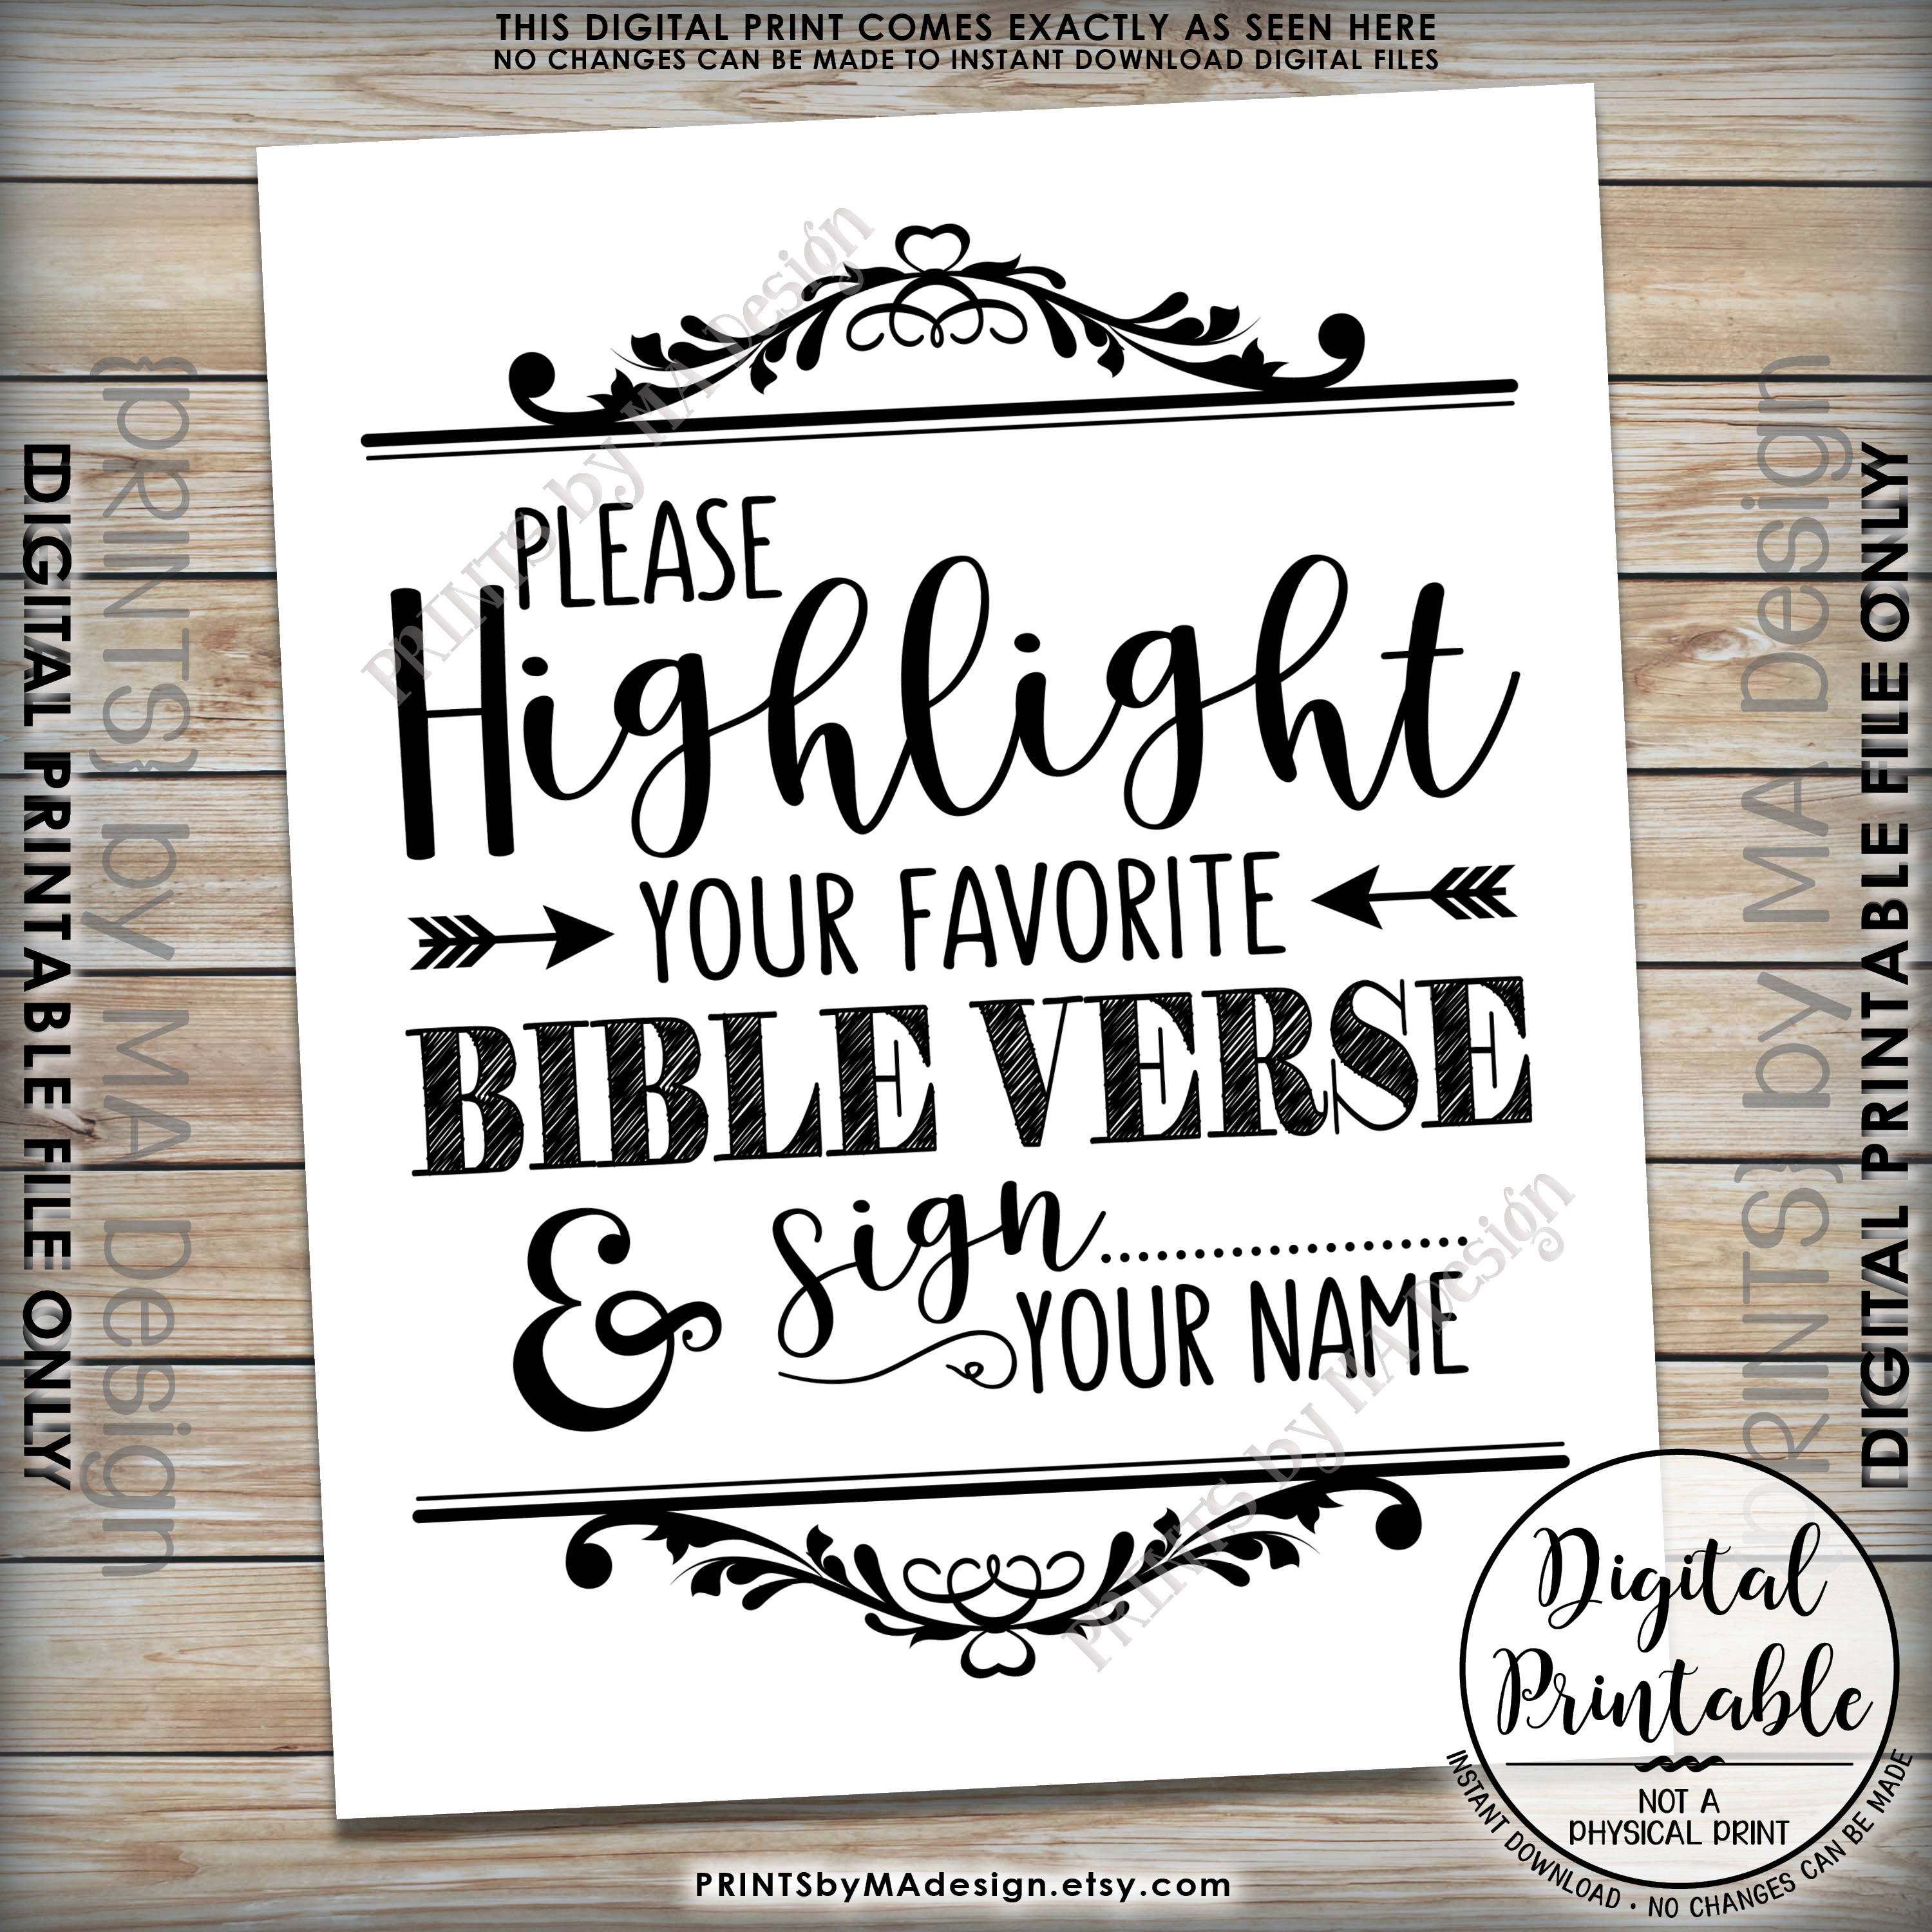 THIS DIGITAL PRINT COMES EXACTLY AS SEEN HERE
NO CHANGES CAN BE MADE TO INSTANT DOWNLOAD DIGITAL FILES
DIGITAL PRINTABLE FILE ONLY
{PRINTS} by MA Design
PRINTS by MA Design
PLEASE
Highlight
YOUR FAVORITE
BIBLE VERSE
& sign....................
YOUR NAME
PRINTS by MA Design
{PRINTS} by MA Design
DIGITAL PRINTABLE FILE ONLY
Digital
Printable
NOT A
PHYSICAL PRINT
INSTANT DOWNLOAD • NO CHANGES CAN BE MADE
PRINTSbyMAdesign.etsy.com